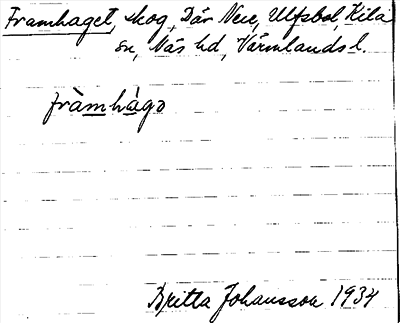 Framhaget, skog, Där Nere, Ulfsbol, Kila
sn, Näs hd, Värmlands l.
fràmhàgo
Britta Johansson 1934